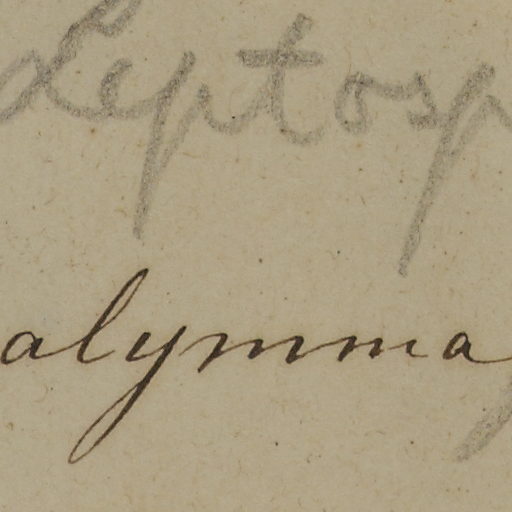 Leptosp
alymma